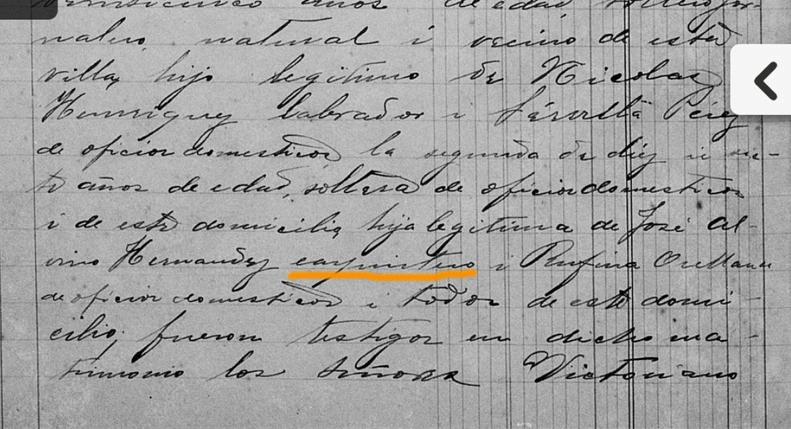 años de edad soltero jor-
nalero, natural i vecino de esta
villa, hijo legitimo de Nicolas
Henriquez labrador i Pérez
de oficios domesticos la segunda de diez i sie-
te años de edad, soltera de oficios domesticos
i de este domicilio, hija legitima de José Al-
vino Hernandez carpintero i Rufina Orellana
de oficios domesticos i todos de este domi-
cilio; fueron testigos en dicho ma-
trimonio los señores Victoriano